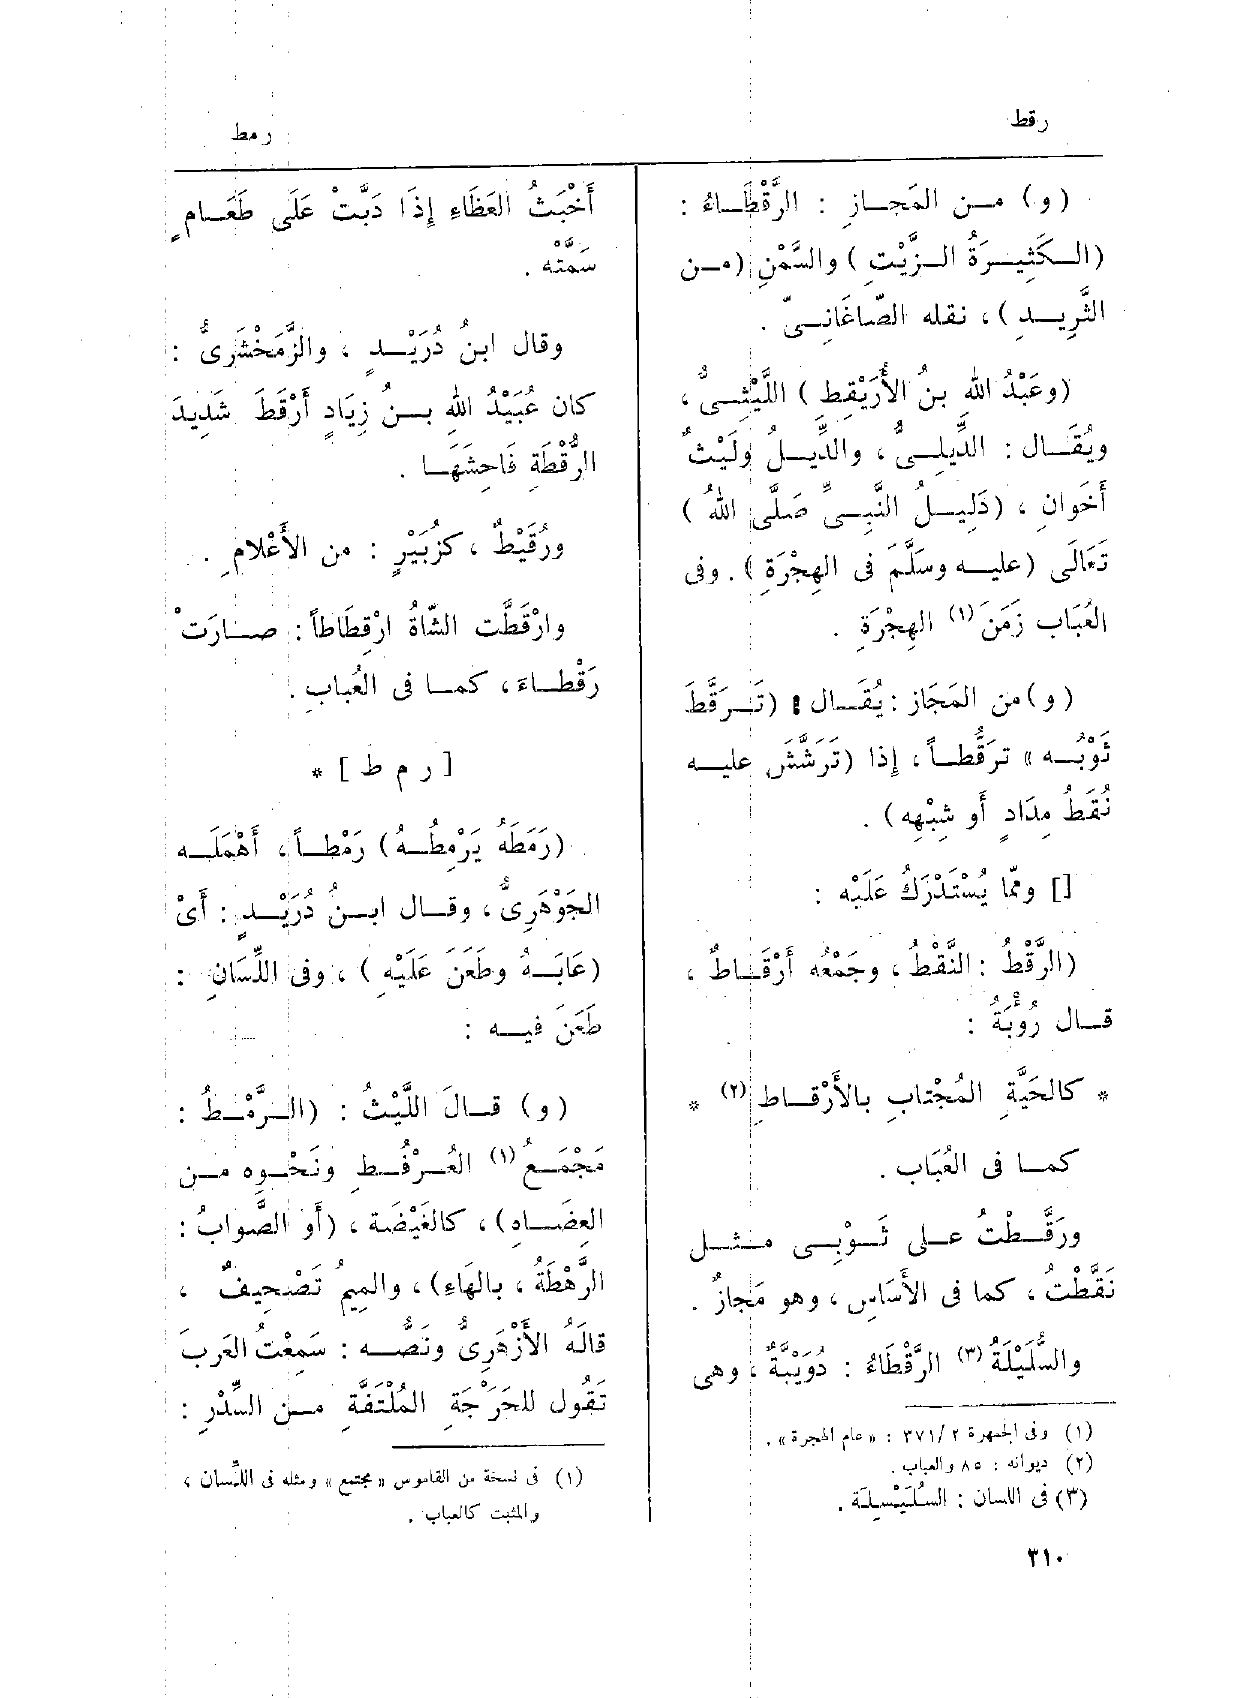 رقط
(و) مـن المَجـازِ : الرَّقْطَـاءُ :
(الـكَثِيـرَةُ الـزَّيْتِ) والسَّمْنِ (مـن
الثَّرِيـدِ)، نقله الصّاغَانِـىّ .
(وعَبْدُ اللهِ بنُ الأُرَيْقِطِ) اللَّيْثِـىُّ ،
ويُقَـال : الدِّيلِـىُّ ، والدِّيـلُ ولَيْثٌ
أَخَوانِ ، (دَلِيـلُ النَّبِـىِّ صَلَّى اللهُ)
تَعَالَى (عليـه وسَلَّمَ فى الهِجْرَةِ) . وفى
العُبَاب زَمَنَ (١) الهِجْرَةِ .
(و) من المَجَاز : يُقَـال : (تَـرَقَّطَ
ثَوْبُـه » ترَقُّطـاً ، إِذا (تَرَشَّشَ عليـه
نُقَطُ مِدَادٍ أَو شِبْهِه) .
[] وممّا يُسْتَدْرَكُ عَلَيْه :
(الرَّقْطُ : النَّقْطُ ، وجَمْعُه أَرْقَـاطٌ ،
قـال رُؤْبَةُ :
* كالحَيَّةِ المُجْتابِ بالأَرْقـاطِ (٢) *
كمـا فى العُبَاب .
ورَقَّـطْتُ عـلى ثَـوْبِـى مـثـل
نَقَّطْتُ ، كما فى الأَسَاسِ ، وهو مَجازٌ .
والسُّلَيْلَةُ (٣) الرَّقْطَاءُ : دُوَيْبَّةٌ ، وهى
(١) وفى الجمهرة ٢ / ٣٧١ : «عام الهجرة» .
(٢) ديوانه : ٨٥ والعباب .
(٣) فى اللسان : السُّلَيْسِلَة .
٣١٠
رمط
أَخْبَثُ العَظَاءِ إِذَا دَبَّتْ عَلَى طَعَـامٍ
سَمَّتْه .
وقال ابنُ دُرَيْـدٍ ، والزَّمَخْشَرِىُّ :
كان عُبَيْدُ اللهِ بـنُ زِيَادٍ أَرْقَطَ شَدِيدَ
الرُّقْطَةِ فَاحِشَهَـا .
ورُقَيْطٌ ، كزُبَيْرٍ : من الأَعْلامِ .
وارْقَطَّت الشّاةُ ارْقِطَاطاً : صـارَتْ
رَقْطـاءَ ، كمـا فى العُبابِ .
[ ر م ط ] *
(رَمَطَهُ يَرْمِطُـهُ) رَمْطـاً ، أَهْمَلَـه
الجَوْهَرِىُّ ، وقـال ابـنُ دُرَيْـدٍ : أَىْ
(عَابَـهُ وطَعَنَ عَلَيْهِ) ، وفى اللِّسَانِ :
طَعَنَ فيـه :
(و) قـالَ اللَّيْثُ : (الـرَّمْـطُ :
مَجْمَـعُ (١) العُـرْفُـطِ ونَحْـوِه مـن
العِضَـاهِ) ، كالغَيْضَة ، (أَو الصَّوابُ :
الرَّهْطَةُ ، بالهَاءِ) ، والمِيمُ تَصْحِيفٌ ،
قالَهُ الأَزْهَرِىُّ ونَصُّـه : سَمِعْتُ العَربَ
تَقُول للحَرَجَةِ المُلْتَفَّةِ مـن السِّدْرِ :
(١) فى نسخة من القاموس «مجتمع» ومثله فى اللِّسان ،
والمثبت كالعباب .